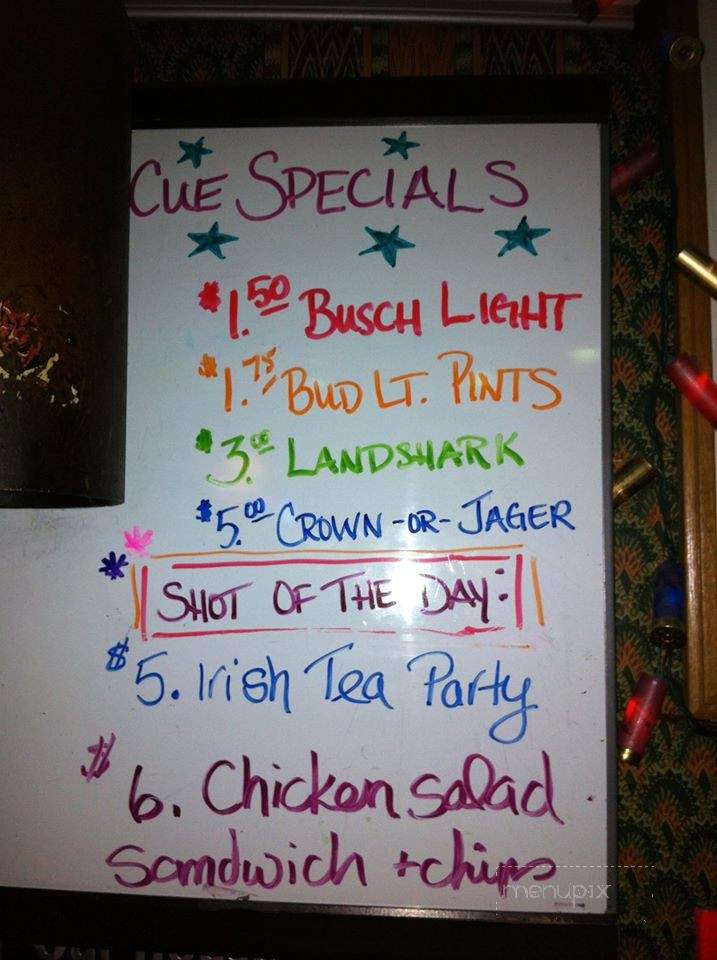 CUE SPECIALS
$1.50 BUSCH LIGHT
$1.75 BUD LT. PINTS
$3.00 LANDSHARK
$5.00 CROWN -OR- JAGER
SHOT OF THE DAY:
$5. Irish Tea Party
$6. Chicken salad
sandwich + chips
menupix